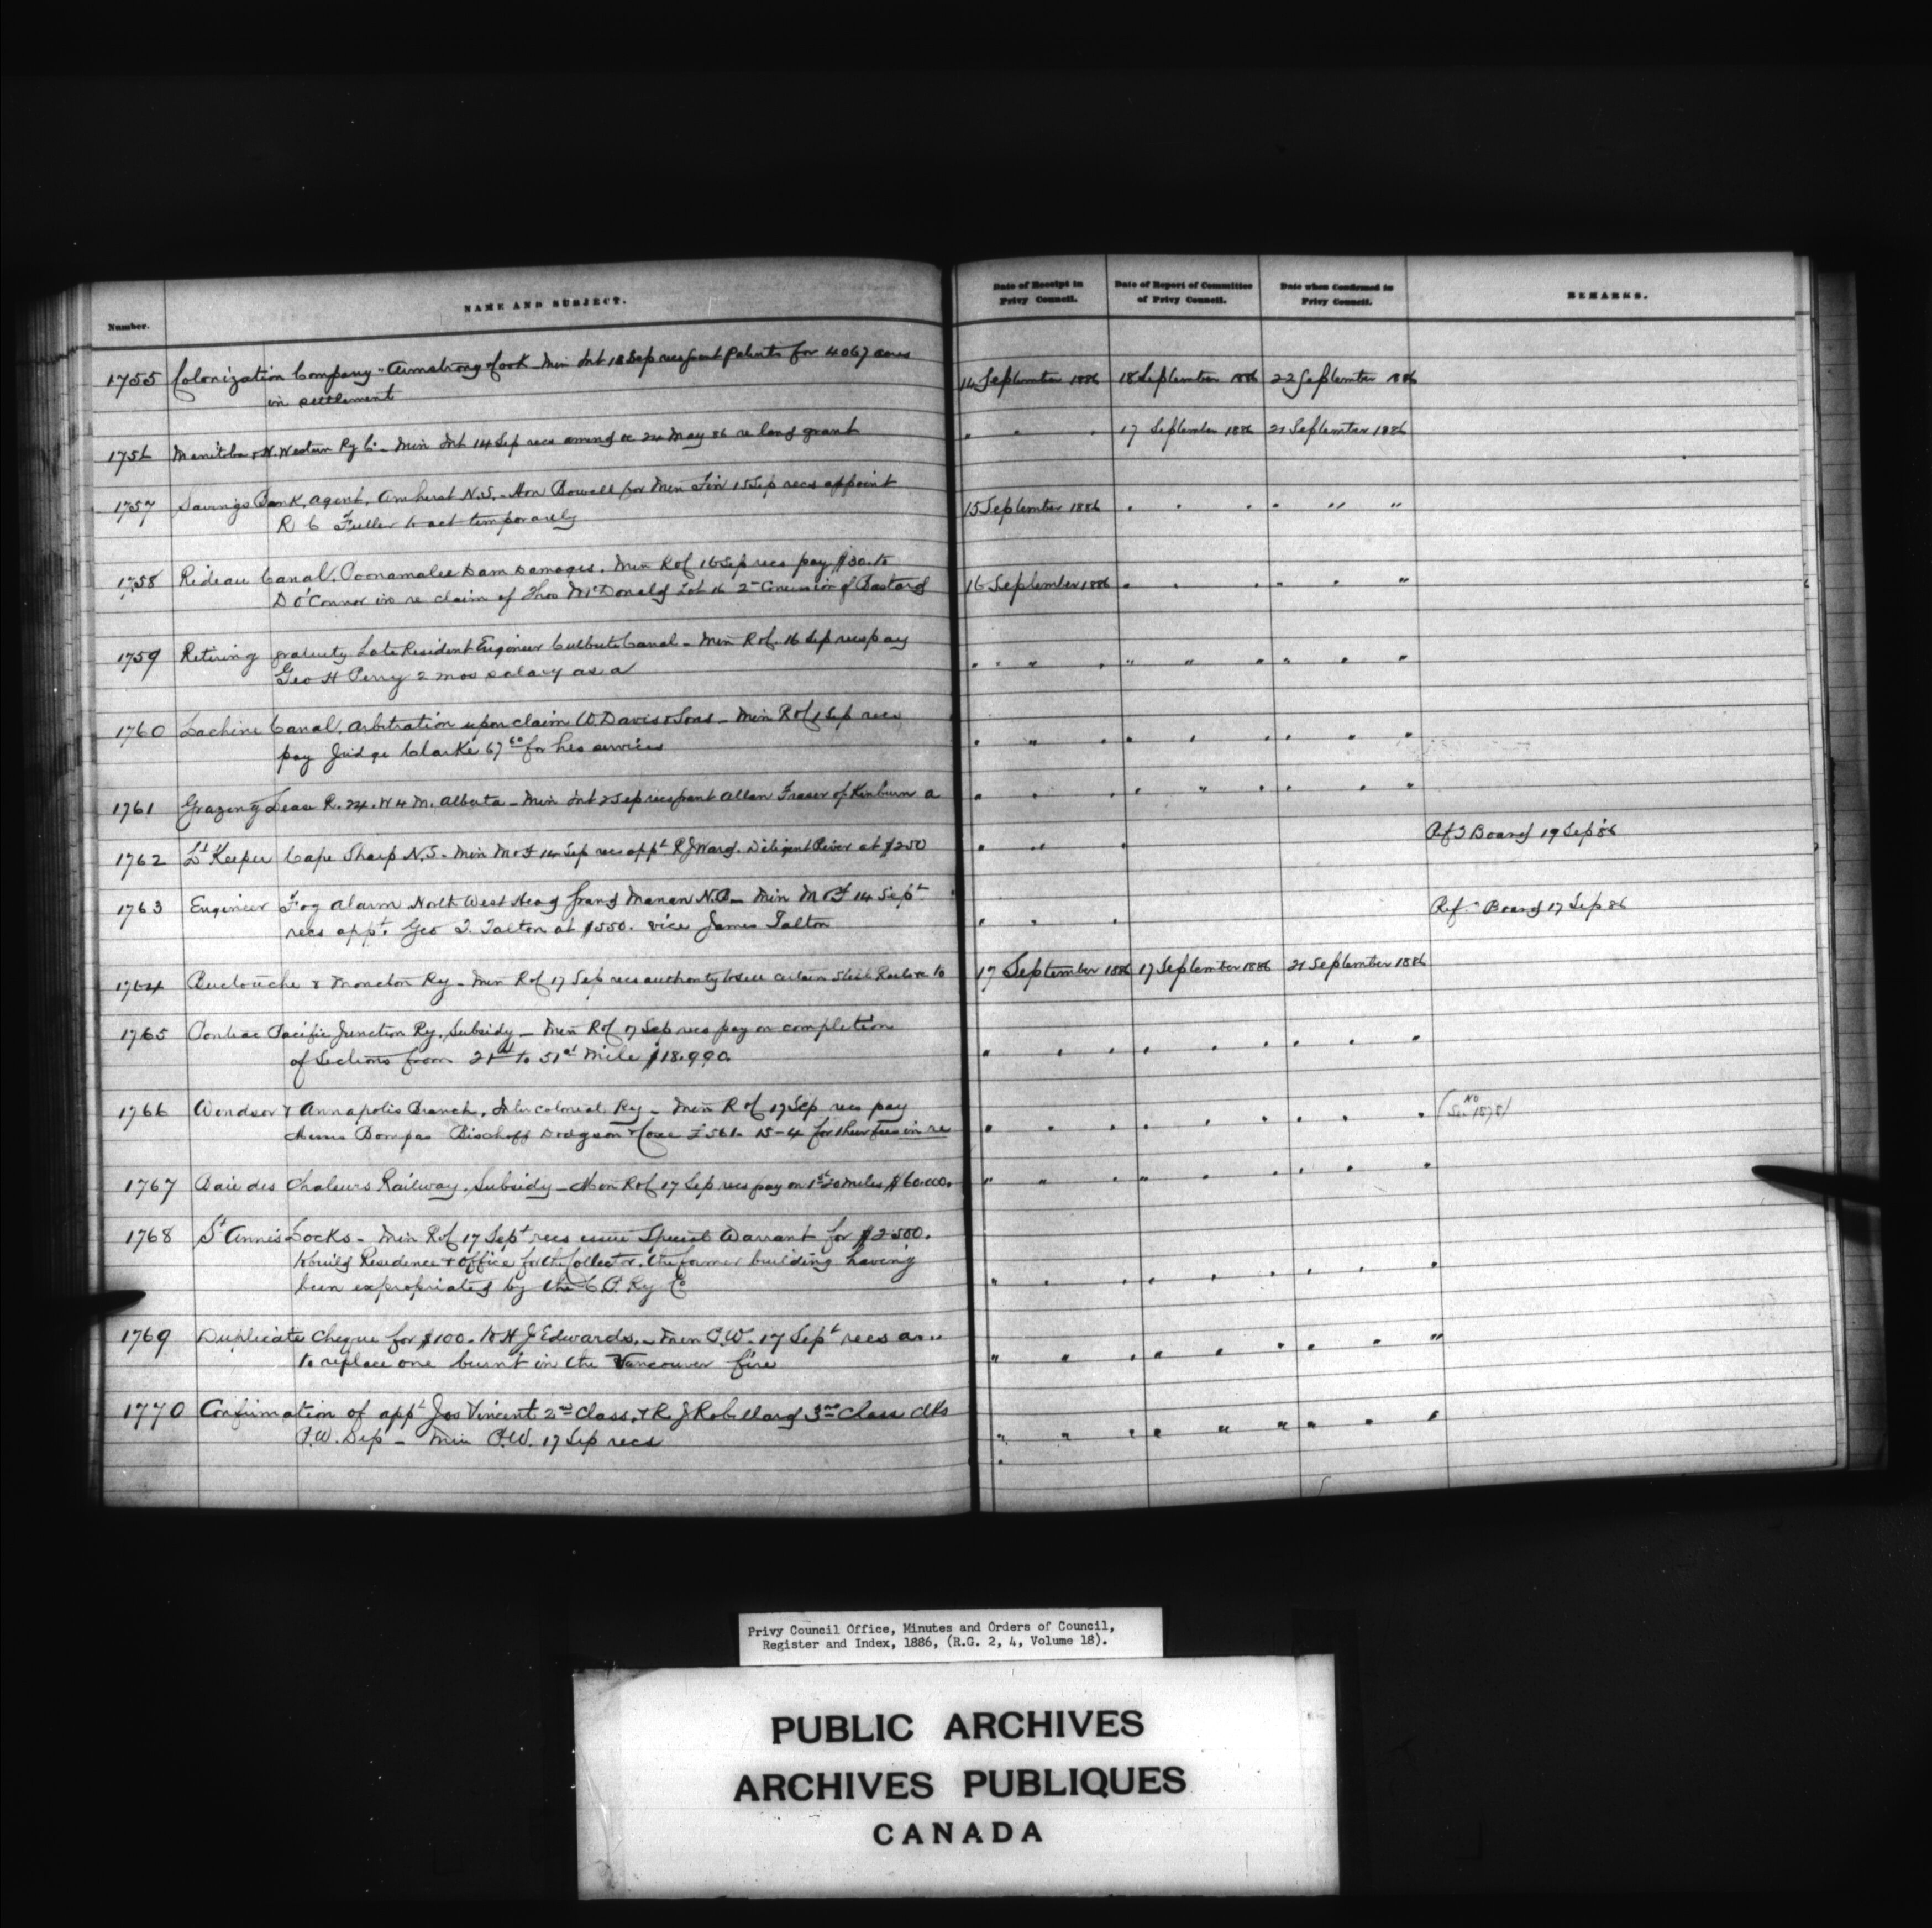 Number.
NAME AND SUBJECT.
Date of Receipt in Privy Council.
Date of Report of Committee of Privy Council.
Date when Confirmed in Privy Council.
REMARKS.
1755 Colonization Company - Armstrong & Cook - Min Int 13 Sep recs grant patents for 4067 acres 14 September 1886 18 September 1886 22 September 1886
in settlement
1756 Manitoba & N. Western Ry Co - Min Int 14 Sep recs amend oc 24 May 86 re land grant " " " 17 September 1886 21 September 1886
1757 Savings Bank, agent, Amherst N.S. - Hon Bowell for Min Fin 15 Sep recs appoint
R C Fuller to act temporarily 15 September 1886 " " " " " "
1758 Rideau Canal. Poonamalee Dam Damages. Min R of 16 Sep recs pay $30. to
D O'Connor in re claim of Thos McDonald Lot 16 2nd Concession of Bastard 16 September 1886 " " " " " "
1759 Retiring gratuity Late Resident Engineer Culbute Canal - Min R of. 16 Sep recs pay
Geo H Perry 2 mos salary as a " " " " " " " " "
1760 Lachine Canal, arbitration upon claim W. Davis & Sons - Min R of 1 Sep recs
pay Judge Clarke 67 60 for his services " " " " " " " " "
1761 Grazing Lease R. 24. W 4 M. Alberta - Min Int 2 Sep recs grant Allan Fraser of Kinburn a " " " " " " " " "
1762 Lt Keeper Cape Sharp N.S - Min M & F 14 Sep recs appt R J Ward. Diligent River at $250 " " " Ref T Board 19 Sep 86
1763 Engineer Fog Alarm North West Head Grand Manan N.B - Min M & F 14 Sept
recs appt. Geo T. Talton at $550. vice James Talton " " " Ref " Board 17 Sep 86
1764 Buctouche & Moncton Ry - Min R of 17 Sep recs authority to sell certain Steel Rails to 17 September 1886 17 September 1886 21 September 1886
1765 Pontiac Pacific Junction Ry. Subsidy - Min R of 17 Sep recs pay on completion
of Sections from 21st to 31st Mile $18.990. " " " " " " " " "
1766 Windsor & Annapolis Branch, Intercolonial Ry - Min R of 17 Sep recs pay
Messrs Bompas Bischoff Dodgson & Coxe £561. 15-4 for their fees in re " " " " " " " " "
1767 Baie des Chaleurs Railway. Subsidy - Min R of 17 Sep recs pay on 1st 20 miles $60.000. " " " " " " " " "
1768 St Annis Locks - Min R of 17 Sept recs issue Special Warrant for $2500.
to build Residence & office for the Collector. the former building having
been expropriated by the C. P. Ry Co " " " " " " " " "
1769 Duplicate cheque for $100. to H J Edwards. - Min P.W. 17 Sept recs as "
to replace one burnt in the Vancouver fire " " " " " " " " "
1770 Confirmation of appt Jos Vincent 2nd Class, & R J Robillard 3rd Class clks
P.W. Dep - Min P.W. 17 Sep recs " " " " " " " " "
Privy Council Office, Minutes and Orders of Council,
Register and Index, 1886, (R.G. 2, 4, Volume 18).
PUBLIC ARCHIVES
ARCHIVES PUBLIQUES
CANADA